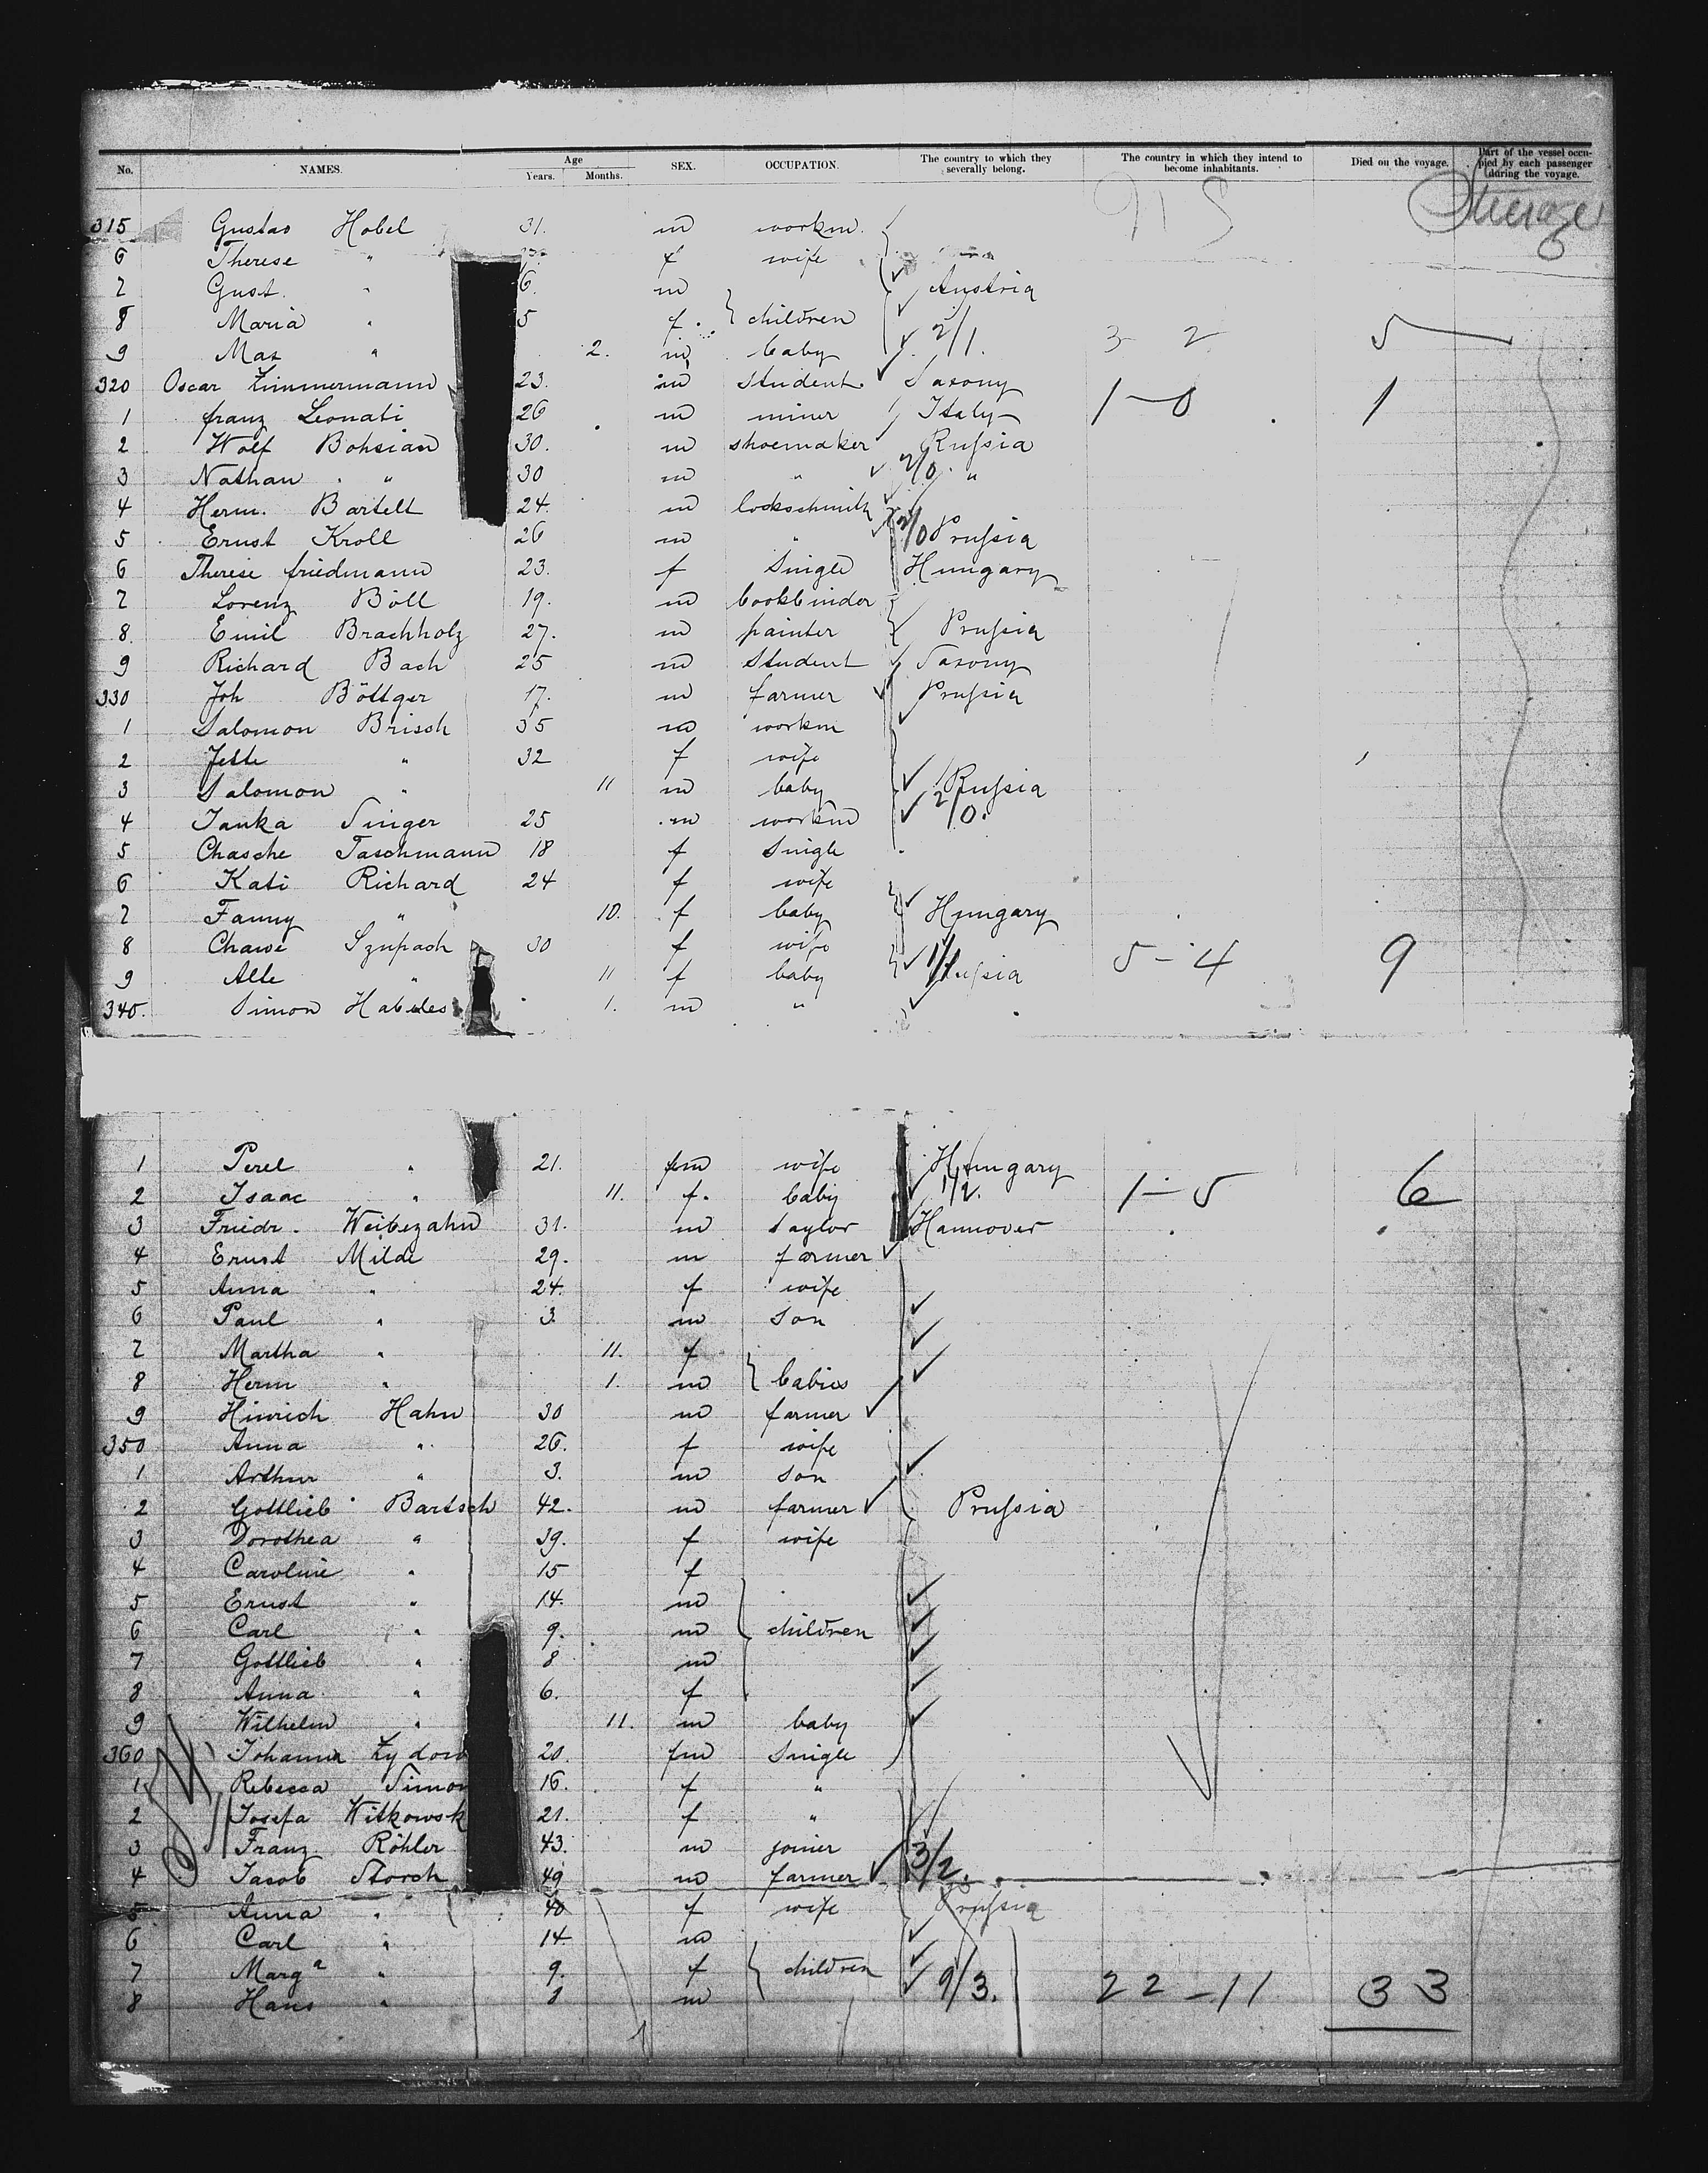 No. NAMES. Age Years. Months. SEX. OCCUPATION. The country to which they severally belong. The country in which they intend to become inhabitants. Died on the voyage. Part of the vessel occupied by each passenger during the voyage.
Steerage
315 Gustav Hobel 31. m workm.
6 Therese " f wife
7 Gust. " 6. m Austria
8 Maria " 5 f. } children
9 Max " 2. m baby 2/1. 3-2 5
320 Oscar Zimmermann 23. m student Saxony
1 franz Leonati 26 m miner Italy 1-0 1
2 Wolf Bohsian 30. m shoemaker Russia
3 Nathan " 30 m " 2/0 "
4 Herm. Bartelt 24. m lockschmith
5 Ernst Kroll 26 m " 2/0 Prussia
6 Therese friedmann 23. f Single Hungary
7 Lorenz Böll 19. m bookbinder
8 Emil Brachholz 27. m painter Prussia
9 Richard Bach 25 m Student Saxony
330 Joh Böttger 17. m farmer Prussia
1 Salomon Brisch 35 m workm
2 Jette " 32 f wife
3 Salomon " 11 m baby Russia
4 Janka Singer 25 m workm 2/0.
5 Chasche Taschmann 18 f Single
6 Kati Richard 24 f wife
7 Fanny " 10. f baby Hungary
8 Chawe Szupach 30 f wife
9 Alle " 11 f baby 1/1 Russia 5-4 9
340. Simon Habeles 1. m "
1 Perel " 21. fm wife Hungary
2 Isaac " 11. f. baby 1/2. 1-5 6
3 Friedr. Weibezahn 31. m taylor Hannover
4 Ernst Milde 29. m farmer
5 Anna " 24. f wife
6 Paul " 3. m son
7 Martha " 11. f
8 Herm " 1. m } babies
9 Hinrich Hahn 30 m farmer
350 Anna " 26. f wife
1 Arthur " 3. m son
2 Gottlieb Bartsch 42. m farmer Prussia
3 Dorothea " 39. f wife
4 Caroline " 15 f
5 Ernst " 14. m
6 Carl " 9. m children
7 Gottlieb " 8 m
8 Anna " 6. f
9 Wilhelm " 11. m baby
360 Johanna Zydow 20. fm Single
1 Rebecca Simon 16. f "
2 Josefa Witkowsk 21. f "
3 Franz Röhler 43. m joiner
4 Jacob Storch 49 m farmer 3/2.
5 Anna " 40 f wife Prussia
6 Carl " 14. m
7 Marga " 9. f } children
8 Hans " 8 m 9/3. 22-11 33